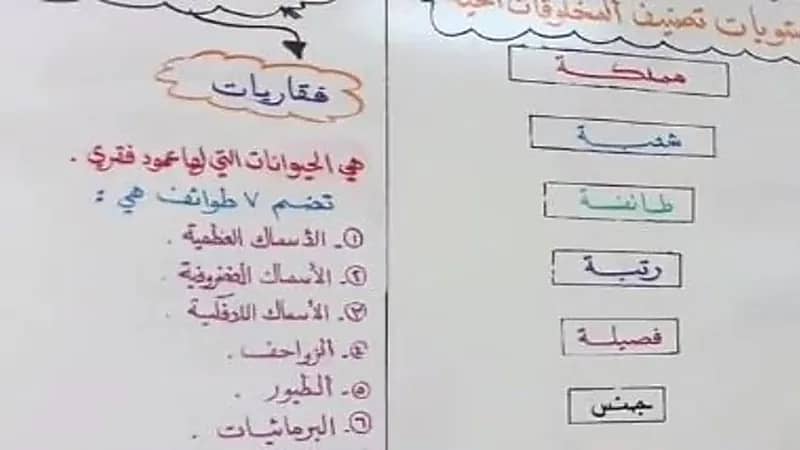 مستويات تصنيف المخلوقات الحية
مملكة
شعبة
طائفة
رتبة
فصيلة
جنس
فقاريات
هي الحيوانات التي لها عمود فقري .
تضم ٧ طوائف هي :
١- الأسماك العظمية .
٢- الأسماك الغضروفية .
٣- الأسماك اللافكية .
٤- الزواحف .
٥- الطيور .
٦- البرمائيات .